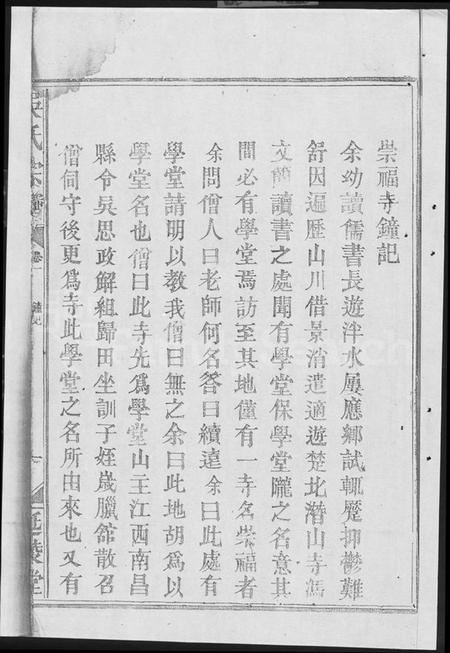 崇福寺鐘記
余幼讀儒書長遊泮水屢應鄉試輒歷抑鬱難
舒因遍歷山川借景消遣適遊楚北潛山寺
文簡讀書之處聞有學堂保學堂隴之名意其
間必有學堂焉訪至其地僅有一寺名崇福者
余問僧人曰老師何名答曰續遠余曰此處有
學堂請明以教我僧曰無之余曰此地胡為以
學堂名也僧曰此寺先為學堂山主江西南昌
縣令吳思政解組歸田坐訓子姪歲臘館散召
僧伺守後更為寺此學堂之名所由來也又有
吳氏宗譜
卷一
鐘記
延陵堂